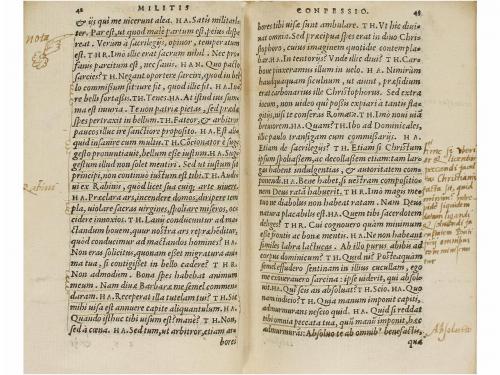 42
MILITIS
& ijs qui me uicerunt alea. HA. Satis militariter. Par est, ut quod male partum est, peius dispereat. Verum à sacrilegijs, opinor, temperatum
est. THR. Imò illic erat sacrum nihil. Nec profanis parcitum est, nec sacris. HAN. Quo pacto
sarcies? TH. Negant oportere sarciri, quod in bello commissum sit: iure fit, quod illic fit. HA. Iure belli fortassis. TH. Tenes. HA. At istud ius summa est iniuria. Te non patriæ pietas, sed prædæ
spes pertraxit in bellum. TH. Fateor, & arbitror
paucos illuc ire sanctiore proposito. HA. Est aliquid insanire cum multis. TH. Cōcionator è suggesto pronuntiauit, bellum esse iustum. HA. Suggestum illud non solet mentiri. Sed ut iustum sit
principi, non continuò iustum est tibi. TH. Audiui ex Rabinis, quod licet sua cuiq; arte uiuere.
HA. Præclara ars, incendere domos, diripere templa, uiolare sacras uirgines, spoliare miseros, occidere innoxios. TH. Lanij conducuntur ad mactandum bouem, quur nostra ars reprehēditur,
quòd conducimur ad mactandos homines? HA.
Non eras solicitus, quonam esset migratura anima tua, si contigisset in bello cadere? THR.
Non admodum. Bona spes habebat animum
meum. Nam diuæ Barbaræ me semel commendaram. HA. Receperat illa tutelam tui? TH. Sic
mihi uisa est annuere capite aliquantulum. HA.
Quando isthuc tibi uisum est? manè? TH. Non,
sed à cœna. HA. Sed tum, ut arbitror, etiam arbores
nota
CONFESSIO.
bores tibi uisæ sunt ambulare. TH. Vt hic diuinat omnia. Sed præcipua spes erat in diuo Christophoro, cuius imaginem quotidie contemplabar. HA. In tentorijs? Vnde illic diui? TH. Carbone pinxeramus illum in uelo. HA. Nimirum
haudquaquam ficulnum, ut aiunt, præsidium
erat carbonarius ille Christophorus. Sed extra
iocum, non uideo qui possis expiari à tantis flagitijs, nisi te conferas Romam. TH. Imò noui uiā
breuiorem. HA. Quam? TH. Ibo ad Dominicales,
illic paulo transigam cum commissarijs. HA.
Etiam de sacrilegijs? TH. Etiam si Christum
ipsum spoliassem, ac decollassem etiam: tam largas habent indulgentias, & autoritatem componendi. HA. Bene habet, si uestram compositionem Deus ratā habuerit. THR. Imò magis metuo ne diabolus non habeat ratam. Nam Deus
natura placabilis est. HA. Quem tibi sacerdotem
deliges? THR. Cui cognouero quàm minimum
esse frontis ac bonæ mentis. HA. Ne non habeant
similes labra lactucas. Ab illo purus abibis ad
corpus dominicum? TH. Quid ni? Posteaquam
semel effudero sentinam in illius cucullam, ego
me exoneraro sarcina: ipse uiderit, qui absoluit. HA. Qui scis an absoluat? TH. Scio. HA. Quonam indicio? TH. Quia manum imponit capiti,
admurmurans nescio quid. HA. Quid si reddat
tibi omnia peccata tua, quū manū imponit, hæc
admurmurans: Absoluo te ab omnib' benefactis,
quæ
Absolutio